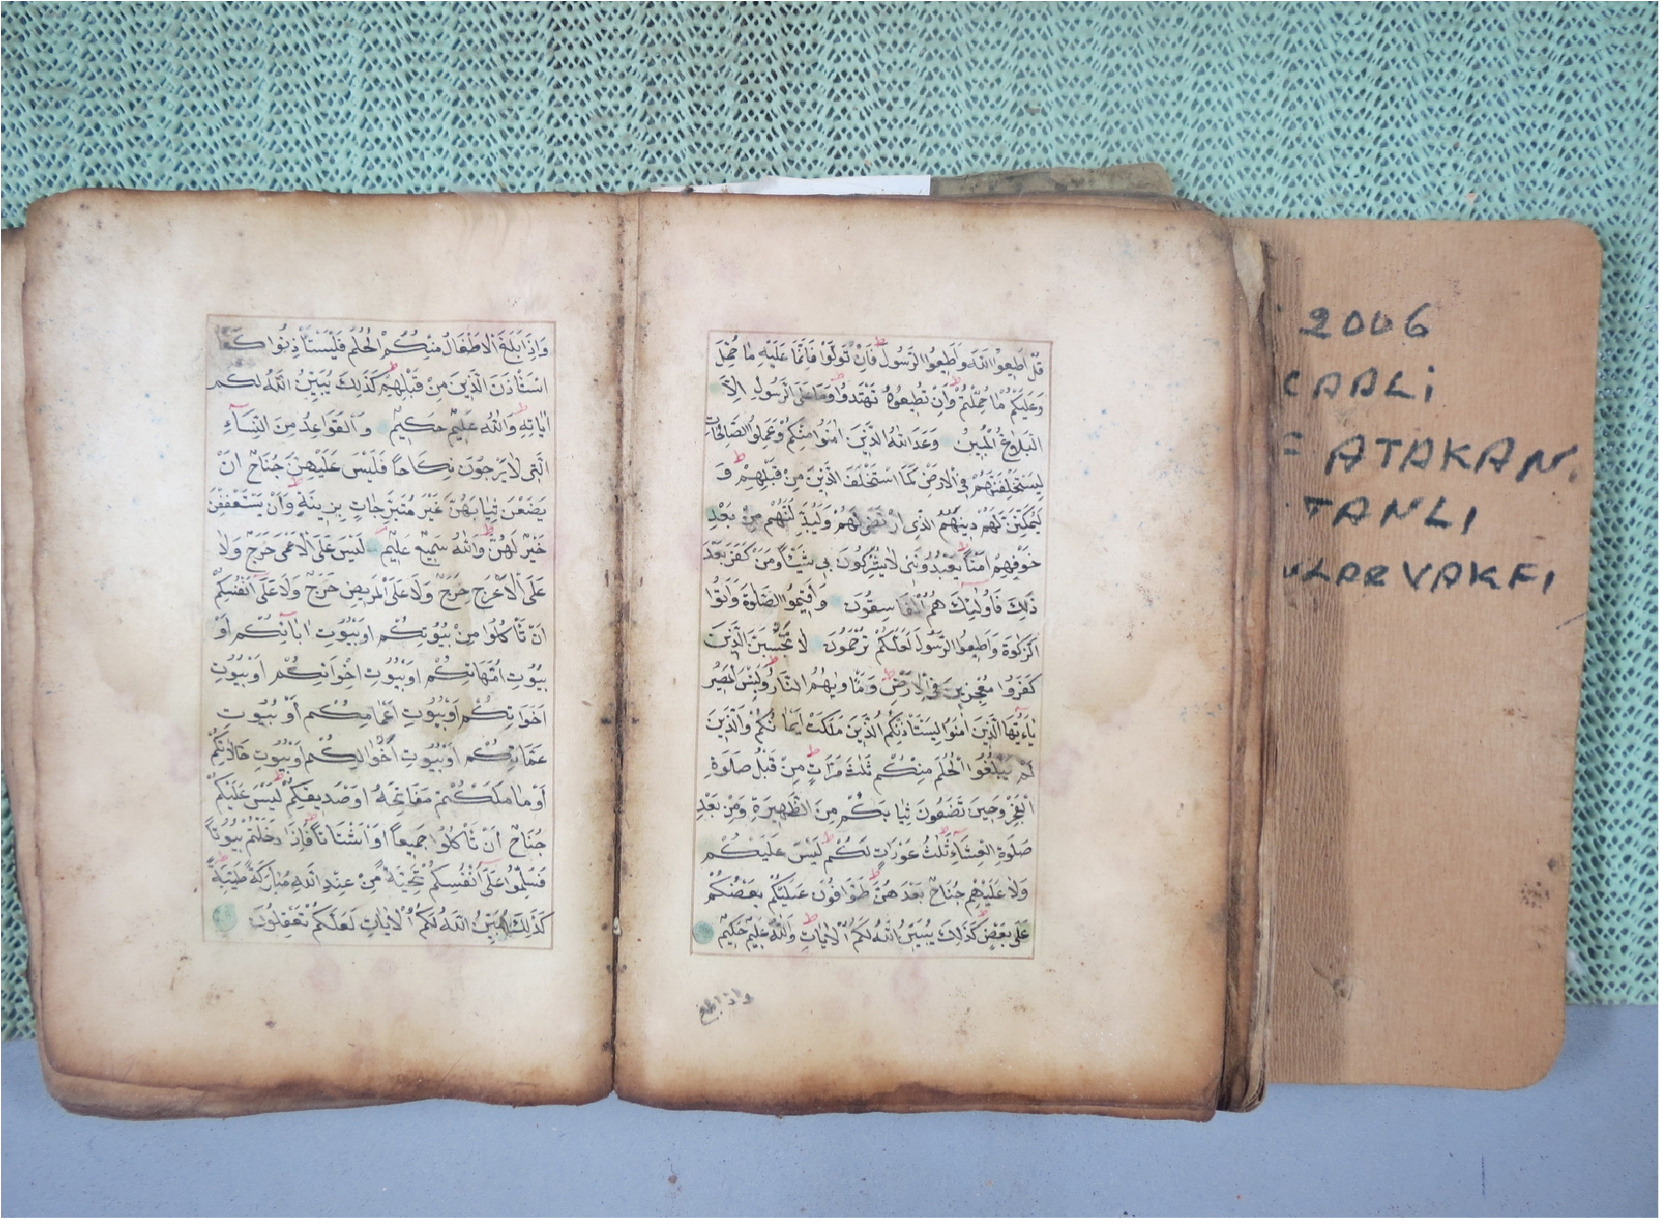 قُلْ اَطٖيعُوا اللّٰهَ وَاَطٖيعُوا الرَّسُولَ فَاِنْ تَوَلَّوْا فَاِنَّمَا عَلَيْهِ مَا حُمِّلَ
وَعَلَيْكُمْ مَا حُمِّلْتُمْ وَاِنْ تُطٖيعُوهُ تَهْتَدُوا وَمَا عَلَى الرَّسُولِ اِلَّا
الْبَلَاغُ الْمُبٖينُ وَعَدَ اللّٰهُ الَّذٖينَ اٰمَنُوا مِنْكُمْ وَعَمِلُوا الصَّالِحَاتِ
لَيَسْتَخْلِفَنَّهُمْ فِي الْاَرْضِ كَمَا اسْتَخْلَفَ الَّذٖينَ مِنْ قَبْلِهِمْ وَ
لَيُمَكِّنَنَّ لَهُمْ دٖينَهُمُ الَّذِي ارْتَضٰى لَهُمْ وَلَيُبَدِّلَنَّهُمْ مِنْ بَعْدِ
خَوْفِهِمْ اَمْنًا يَعْبُدُونَنٖى لَا يُشْرِكُونَ بٖى شَيْئًا وَمَنْ كَفَرَ بَعْدَ
ذٰلِكَ فَاُولٰئِكَ هُمُ الْفَاسِقُونَ وَاَقٖيمُوا الصَّلٰوةَ وَاٰتُوا
الزَّكٰوةَ وَاَطٖيعُوا الرَّسُولَ لَعَلَّكُمْ تُرْحَمُونَ لَا تَحْسَبَنَّ الَّذٖينَ
كَفَرُوا مُعْجِزٖينَ فِي الْاَرْضِ وَمَاْوٰيهُمُ النَّارُ وَلَبِئْسَ الْمَصٖيرُ
يَاءَيُّهَا الَّذٖينَ اٰمَنُوا لِيَسْتَاْذِنْكُمُ الَّذٖينَ مَلَكَتْ اَيْمَانُكُمْ وَالَّذٖينَ
لَمْ يَبْلُغُوا الْحُلُمَ مِنْكُمْ ثَلٰثَ مَرَّاتٍ مِنْ قَبْلِ صَلٰوةِ
الْفَجْرِ وَحٖينَ تَضَعُونَ ثِيَابَكُمْ مِنَ الظَّهٖيرَةِ وَمِنْ بَعْدِ
صَلٰوةِ الْعِشَاءِ ثَلٰثُ عَوْرَاتٍ لَكُمْ لَيْسَ عَلَيْكُمْ
وَلَا عَلَيْهِمْ جُنَاحٌ بَعْدَهُنَّ طَوَّافُونَ عَلَيْكُمْ بَعْضُكُمْ
عَلٰى بَعْضٍ كَذٰلِكَ يُبَيِّنُ اللّٰهُ لَكُمُ الْاٰيَاتِ وَاللّٰهُ عَلٖيمٌ حَكٖيمٌ
واذا بلغ
وَاِذَا بَلَغَ الْاَطْفَالُ مِنْكُمُ الْحُلُمَ فَلْيَسْتَاْذِنُوا كَمَا
اسْتَاْذَنَ الَّذٖينَ مِنْ قَبْلِهِمْ كَذٰلِكَ يُبَيِّنُ اللّٰهُ لَكُمْ
اٰيَاتِهٖ وَاللّٰهُ عَلٖيمٌ حَكٖيمٌ وَالْقَوَاعِدُ مِنَ النِّسَاءِ
الّٰتٖى لَا يَرْجُونَ نِكَاحًا فَلَيْسَ عَلَيْهِنَّ جُنَاحٌ اَنْ
يَضَعْنَ ثِيَابَهُنَّ غَيْرَ مُتَبَرِّجَاتٍ بِزٖينَةٍ وَاَنْ يَسْتَعْفِفْنَ
خَيْرٌ لَهُنَّ وَاللّٰهُ سَمٖيعٌ عَلٖيمٌ لَيْسَ عَلَى الْاَعْمٰى حَرَجٌ وَلَا
عَلَى الْاَعْرَجِ حَرَجٌ وَلَا عَلَى الْمَرٖيضِ حَرَجٌ وَلَا عَلٰى اَنْفُسِكُمْ
اَنْ تَاْكُلُوا مِنْ بُيُوتِكُمْ اَوْ بُيُوتِ اٰبَائِكُمْ اَوْ
بُيُوتِ اُمَّهَاتِكُمْ اَوْ بُيُوتِ اِخْوَانِكُمْ اَوْ بُيُوتِ
اَخَوَاتِكُمْ اَوْ بُيُوتِ اَعْمَامِكُمْ اَوْ بُيُوتِ
عَمَّاتِكُمْ اَوْ بُيُوتِ اَخْوَالِكُمْ اَوْ بُيُوتِ خَالَاتِكُمْ
اَوْ مَا مَلَكْتُمْ مَفَاتِحَهُ اَوْ صَدٖيقِكُمْ لَيْسَ عَلَيْكُمْ
جُنَاحٌ اَنْ تَاْكُلُوا جَمٖيعًا اَوْ اَشْتَاتًا فَاِذَا دَخَلْتُمْ بُيُوتًا
فَسَلِّمُوا عَلٰى اَنْفُسِكُمْ تَحِيَّةً مِنْ عِنْدِ اللّٰهِ مُبَارَكَةً طَيِّبَةً
كَذٰلِكَ يُبَيِّنُ اللّٰهُ لَكُمُ الْاٰيَاتِ لَعَلَّكُمْ تَعْقِلُونَ
2006
CAALİ
= ATAKAN.
TANLI
LAR VAKFI